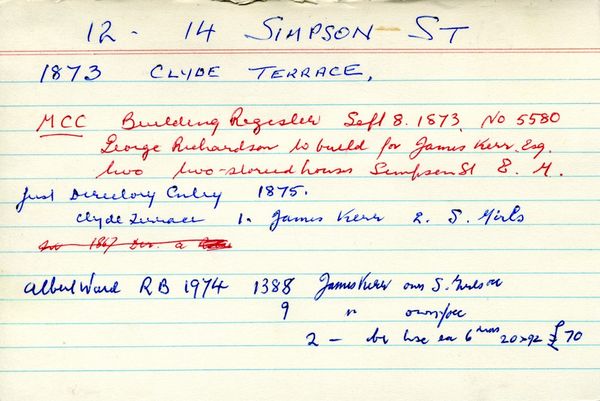 12 - 14 SIMPSON ST
1873 CLYDE TERRACE,
MCC Building Register Sept 8. 1873. No 5580
George Richardson to build for James Kerr. Esq.
two two-storied houses Simpson St E. M.
first Directory Entry 1875.
Clyde Terrace 1. James Kerr 2. S.
1867 Dir. a
Albert Ward RB 1974 1388 James Kerr own S.
9 " own/occ
2 - bk hse ea 6 rms 20x92 £70